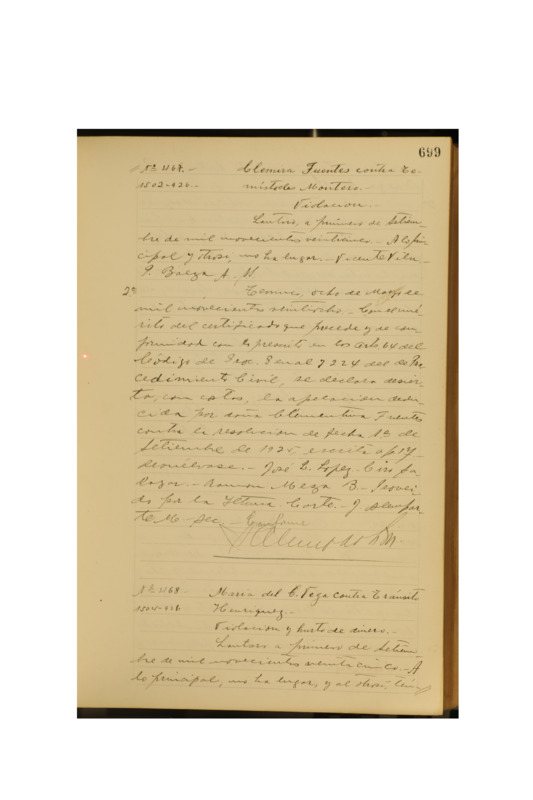 699
Nº 1167.- Clomira Fuentes contra Te-
1502-926.- mistocles Montero.-
Violacion.-
Lautaro, a primero de Setiem-
bre de mil novecientos veinticinco.- A lo prin-
cipal y otrosi, no ha lugar.- Vicente Villa-
P. Baeza A, 
2º Temuco, ocho de Mayo de
mil novecientos veintiocho.- Con el mé-
rito del certificado que precede y de con-
formidad con lo prescrito en los arts 64 del
Código de Proc. Penal y 224 del de Pro-
cedimiento Civil, se declara desier-
ta, con costas, la apelacion dedu-
cida por doña Clementina Fuentes
contra la resolucion de fecha 1º de
Setiembre de 1925, escrita a f 14
Devuélvase.- José L. Lopez- Ciro Sa-
lazar.- Ramon Meza B.- Provei-
do por la Iltma Corte.-
Sec.- Conforme
Nº 1168 Maria del C. Vega contra Tránsito
Henriquez.-
Violacion y hurto de dinero.-
Lautaro a primero de Setiem-
bre de mil novecientos veinticinco.- A
lo principal, no ha lugar, y al otrosi, tén-